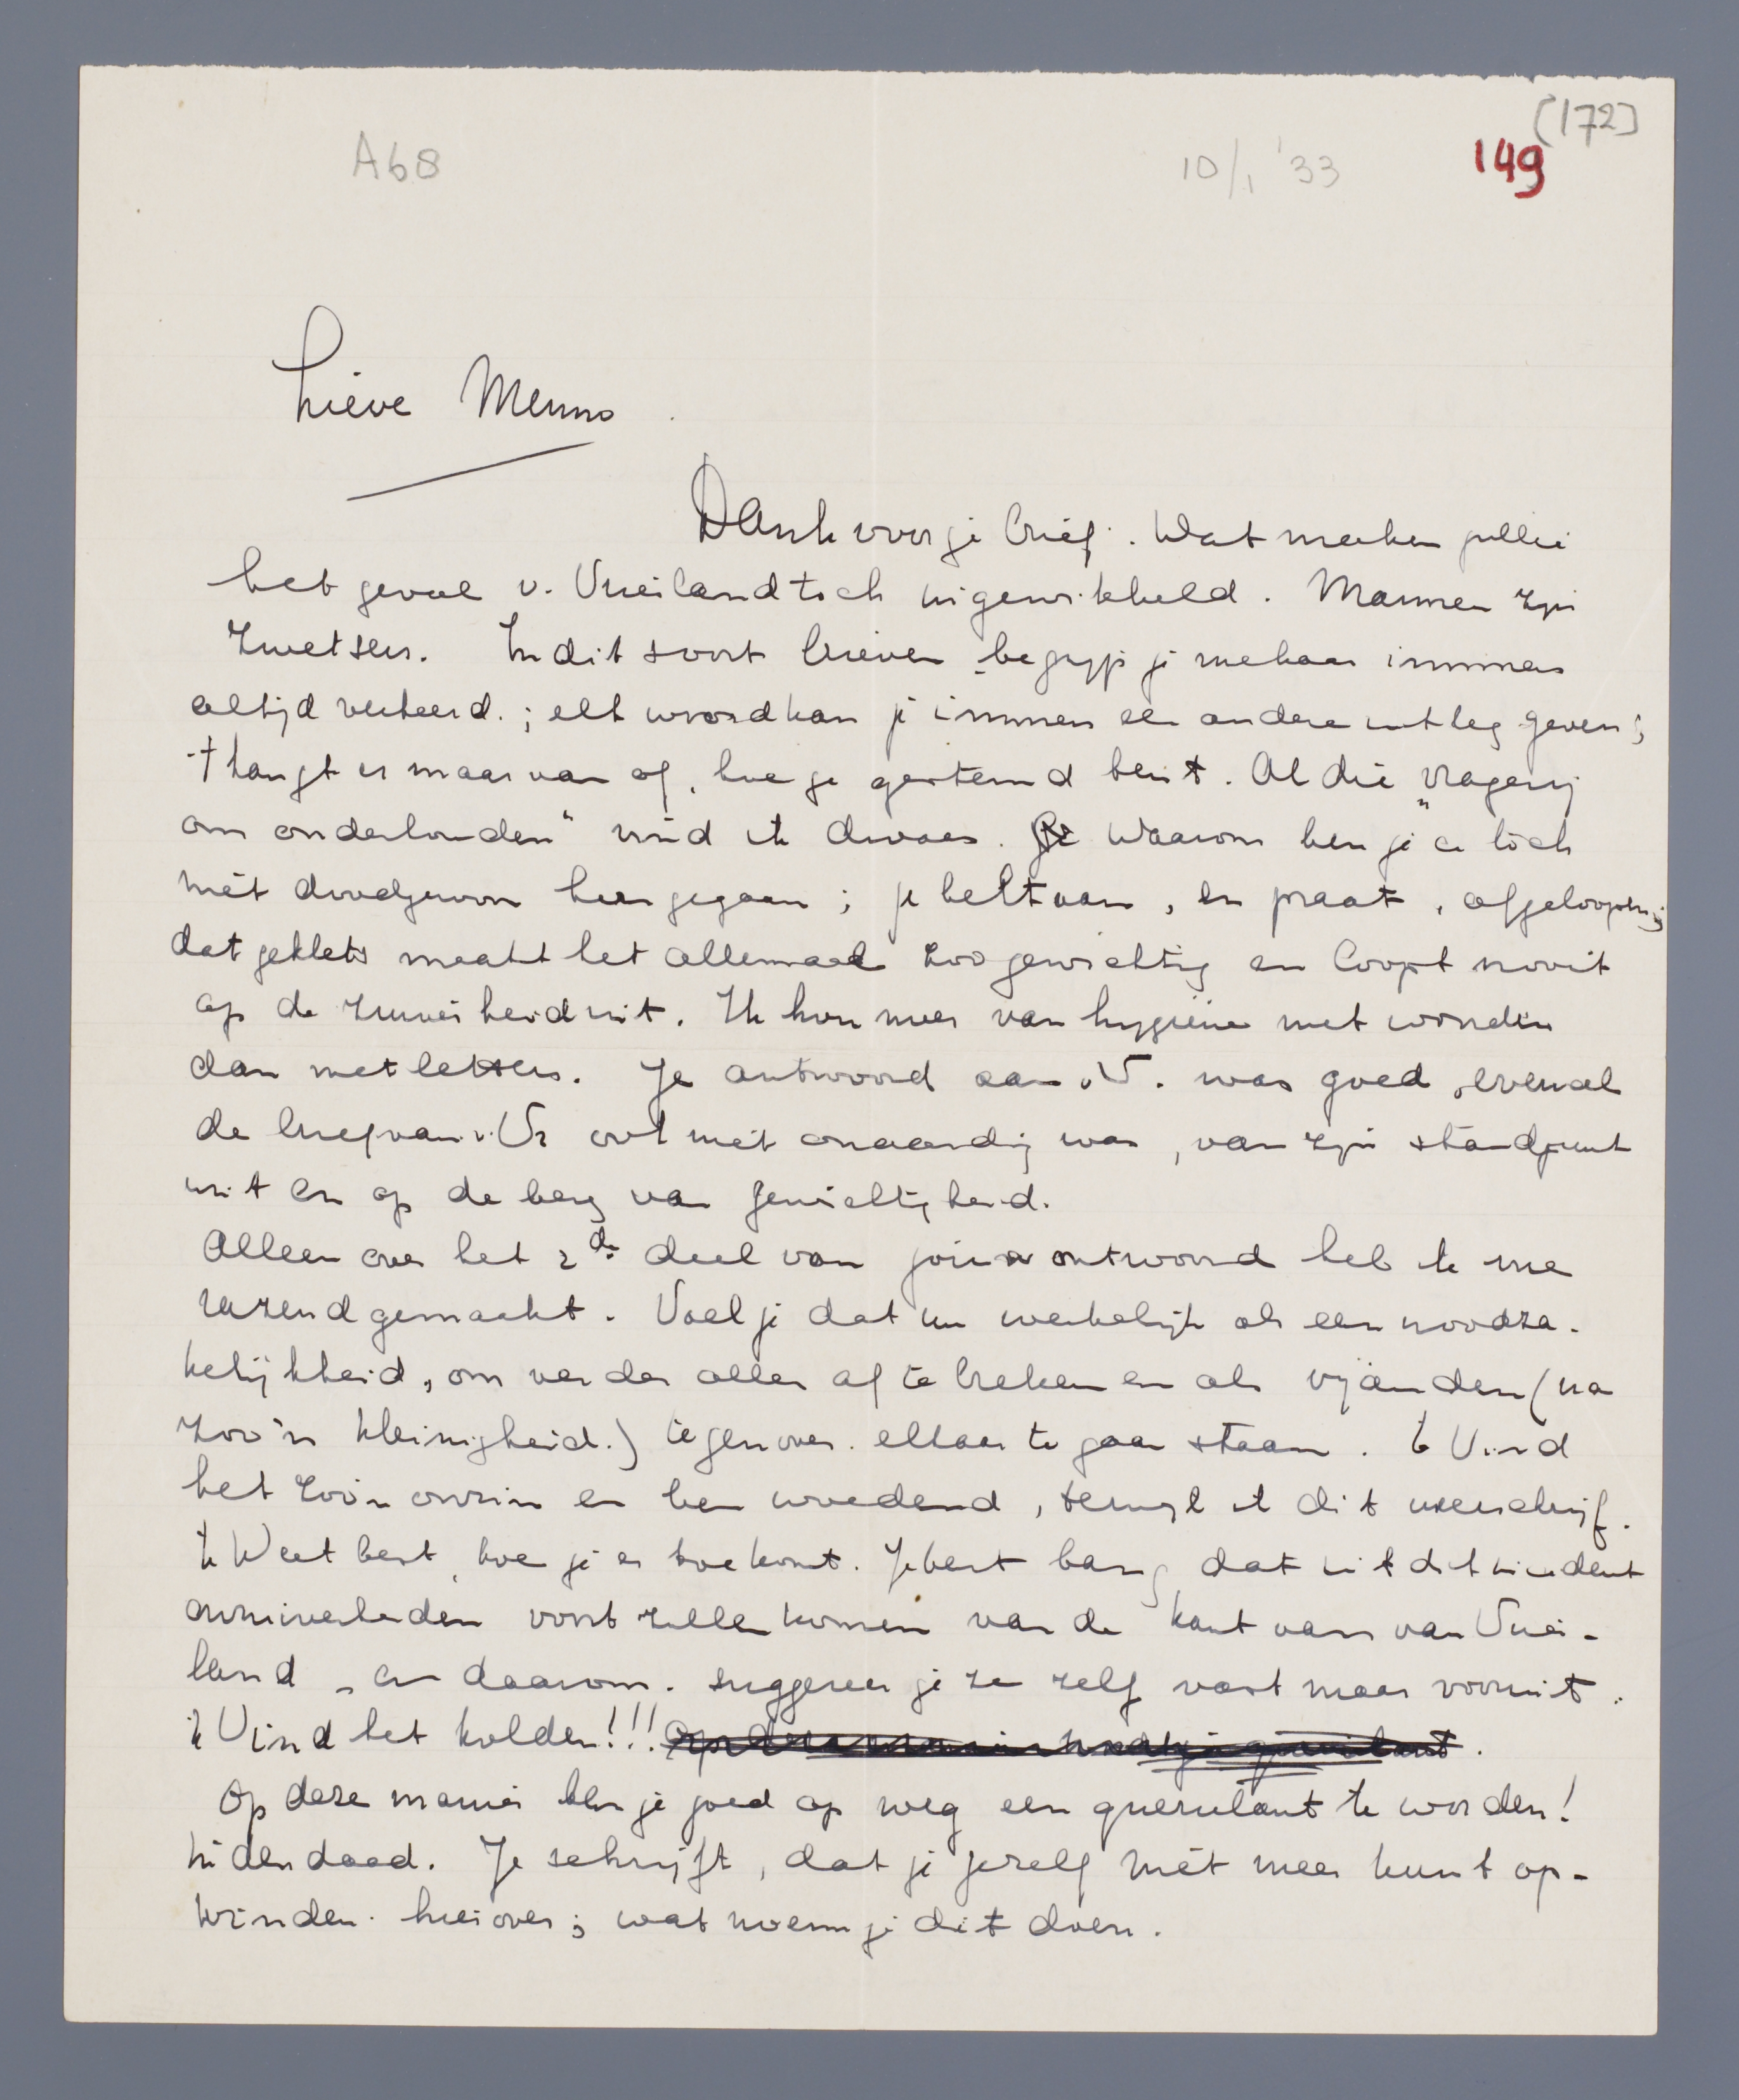 (172]
A68
10/1 '33
149
Lieve Menno
Dank voor je brief. Wat maken jullie
het geval v. Vrieland toch ingewikkeld. Mannen zijn
zwetsers. In dit soort brieven begrijp je mekaar immers
altijd verkeerd.; elk woord kan je immers een andere uitleg geven;
't hangt er maar van af, hoe je gestemd bent. Al die „vragerij
om onderhouden" vind ik dwaas. Waarom ben je er toch
niet doodgewoon heengegaan; je belt aan, en praat, afgeloopen;
dat geklets maakt het allemaal zoo gewichtig en loopt nooit
op de zuiverheid uit. Ik hou meer van hygiëne met woorden
dan met letters. Je antwoord aan v.V. was goed, evenals
de brief van v. Vr ook niet onaardig was, van zijn standpunt
uit en op de berg van gewichtigheid.
Alleen over het 2de deel van jouw antwoord heb ik me
razend gemaakt. Voel je dat nu werkelijk als een noodza-
kelijkheid, om verder alles af te breken en als vijanden (na
zoo'n kleinigheid.) tegenover elkaar te gaan staan. Ik Vind
het zoo'n onzin en ben woedend, terwijl ik dit neerschrijf.
Ik Weet best, hoe je er toe komt. Je bent bang dat uit dit incident
onzuiverheden voort zullen komen van de kant van van Vrie-
land, en daarom suggereer je ze zelf vast maar vooruit.
ik Vind het kolder!!!
Op deze manier ben je goed op weg een querulant te worden!
Inderdaad. Je schrijft, dat je jezelf niet meer kunt op-
winden hierover; wat noem je dit dan.